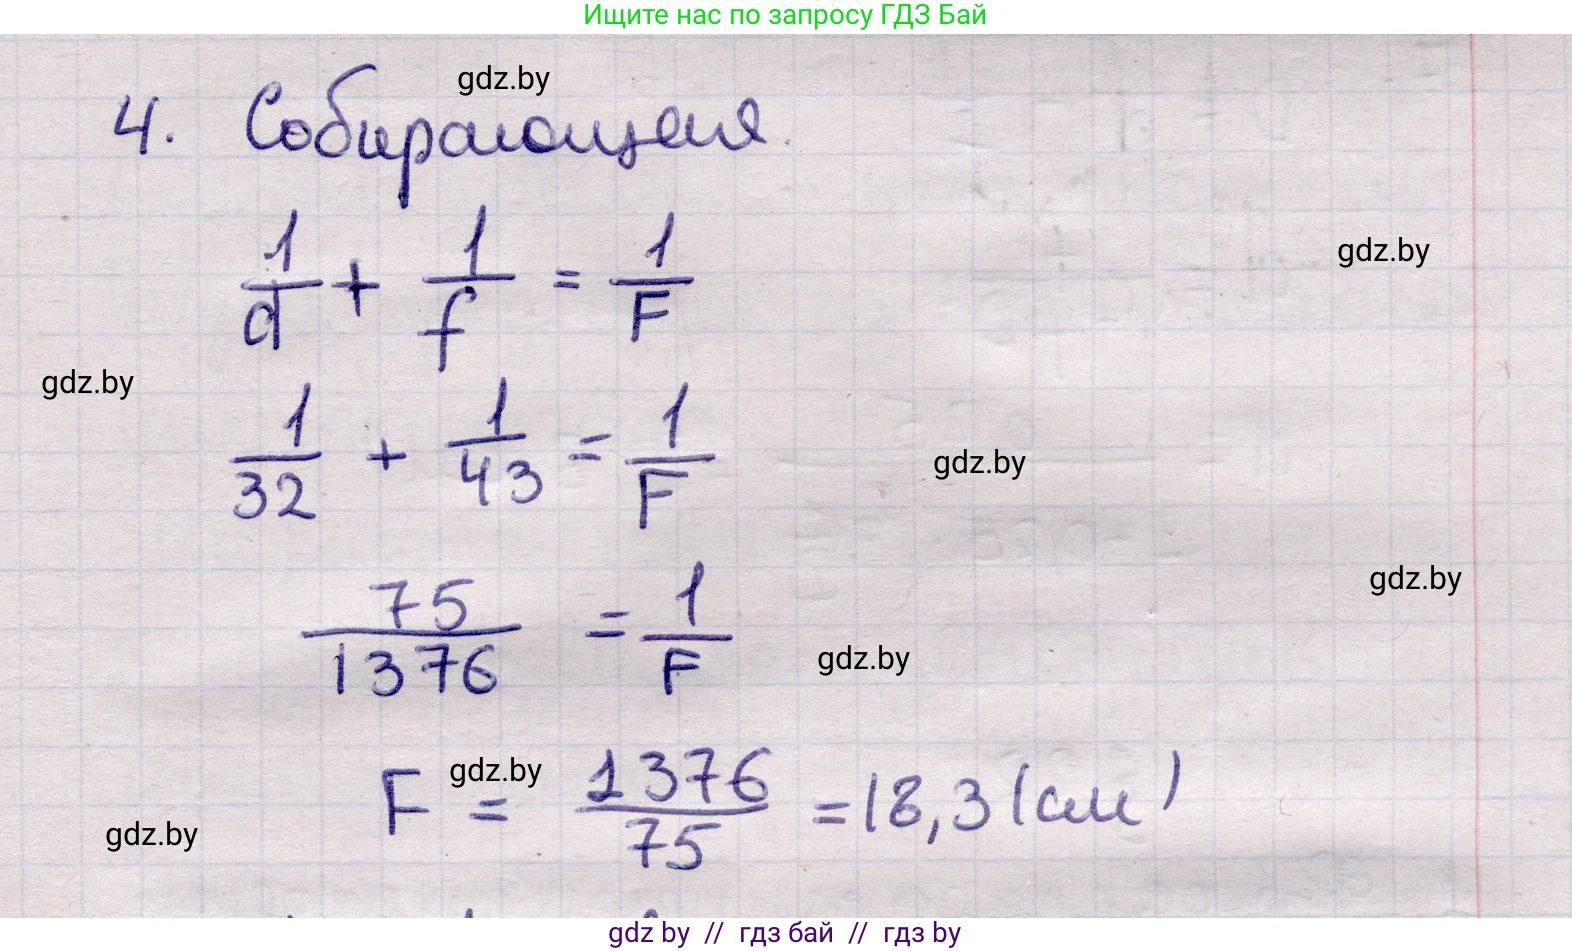 Ищите нас по запросу ГДЗ Бай
gdz.by
4. Собирающая.
gdz.by
1/d + 1/f = 1/F
gdz.by
1/32 + 1/43 = 1/F
gdz.by
gdz.by
75/1376 = 1/F
gdz.by
gdz.by
F = 1376/75 = 18,3 (см)
gdz.by
gdz by // гдз бай // гдз by